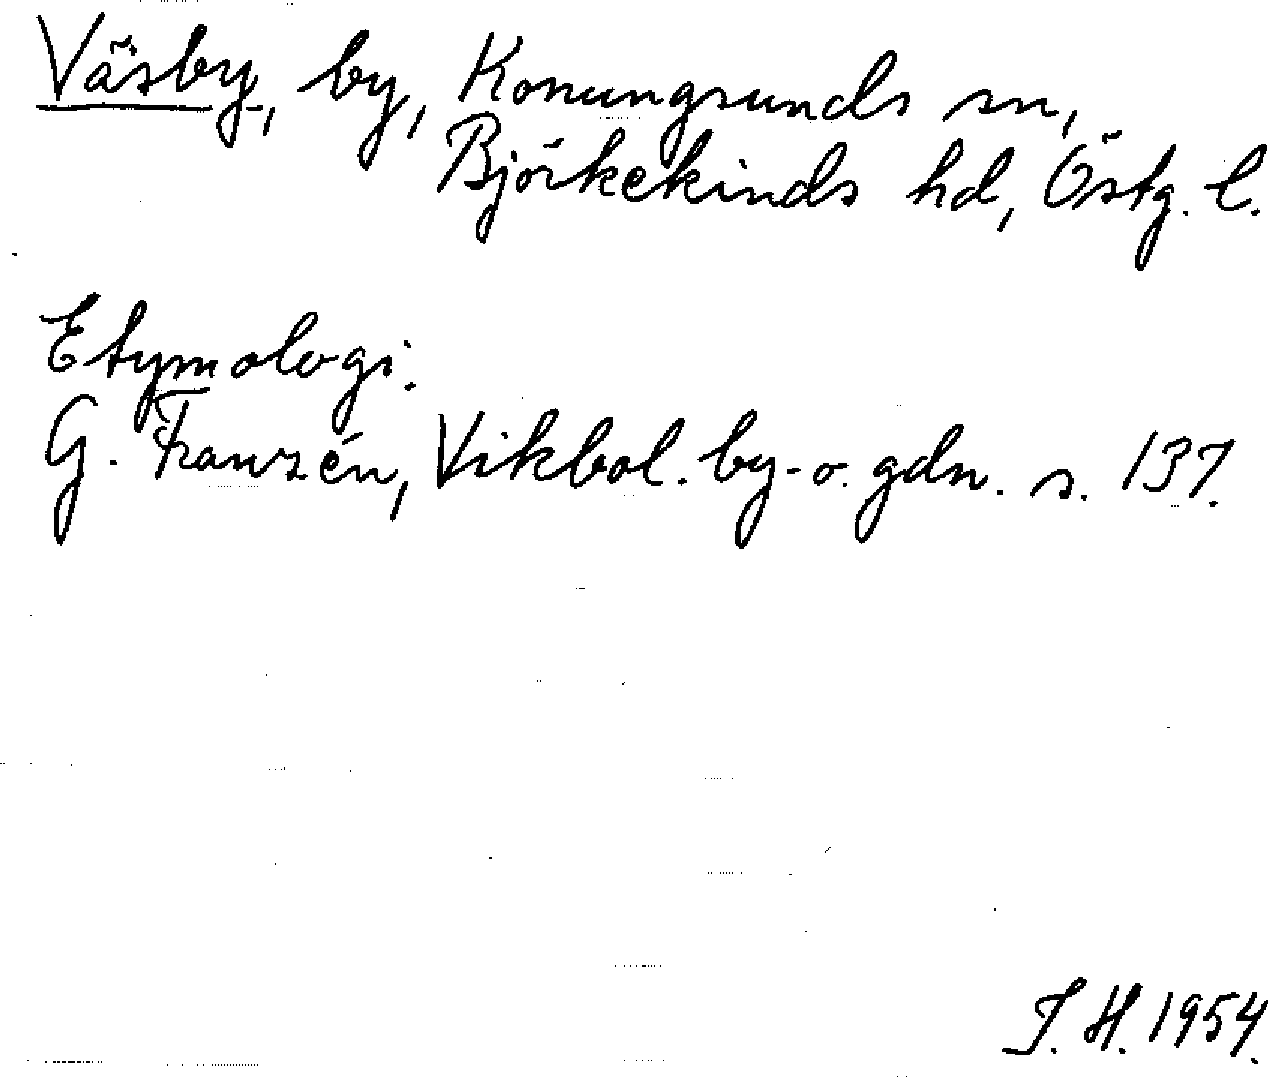 Väsby, by, Konungsunds sn,
Björkekinds hd, Östg. l.
Etymologi:
G. Franzén, Vikbol. by- o. gdn. s. 137.
I. H. 1954.